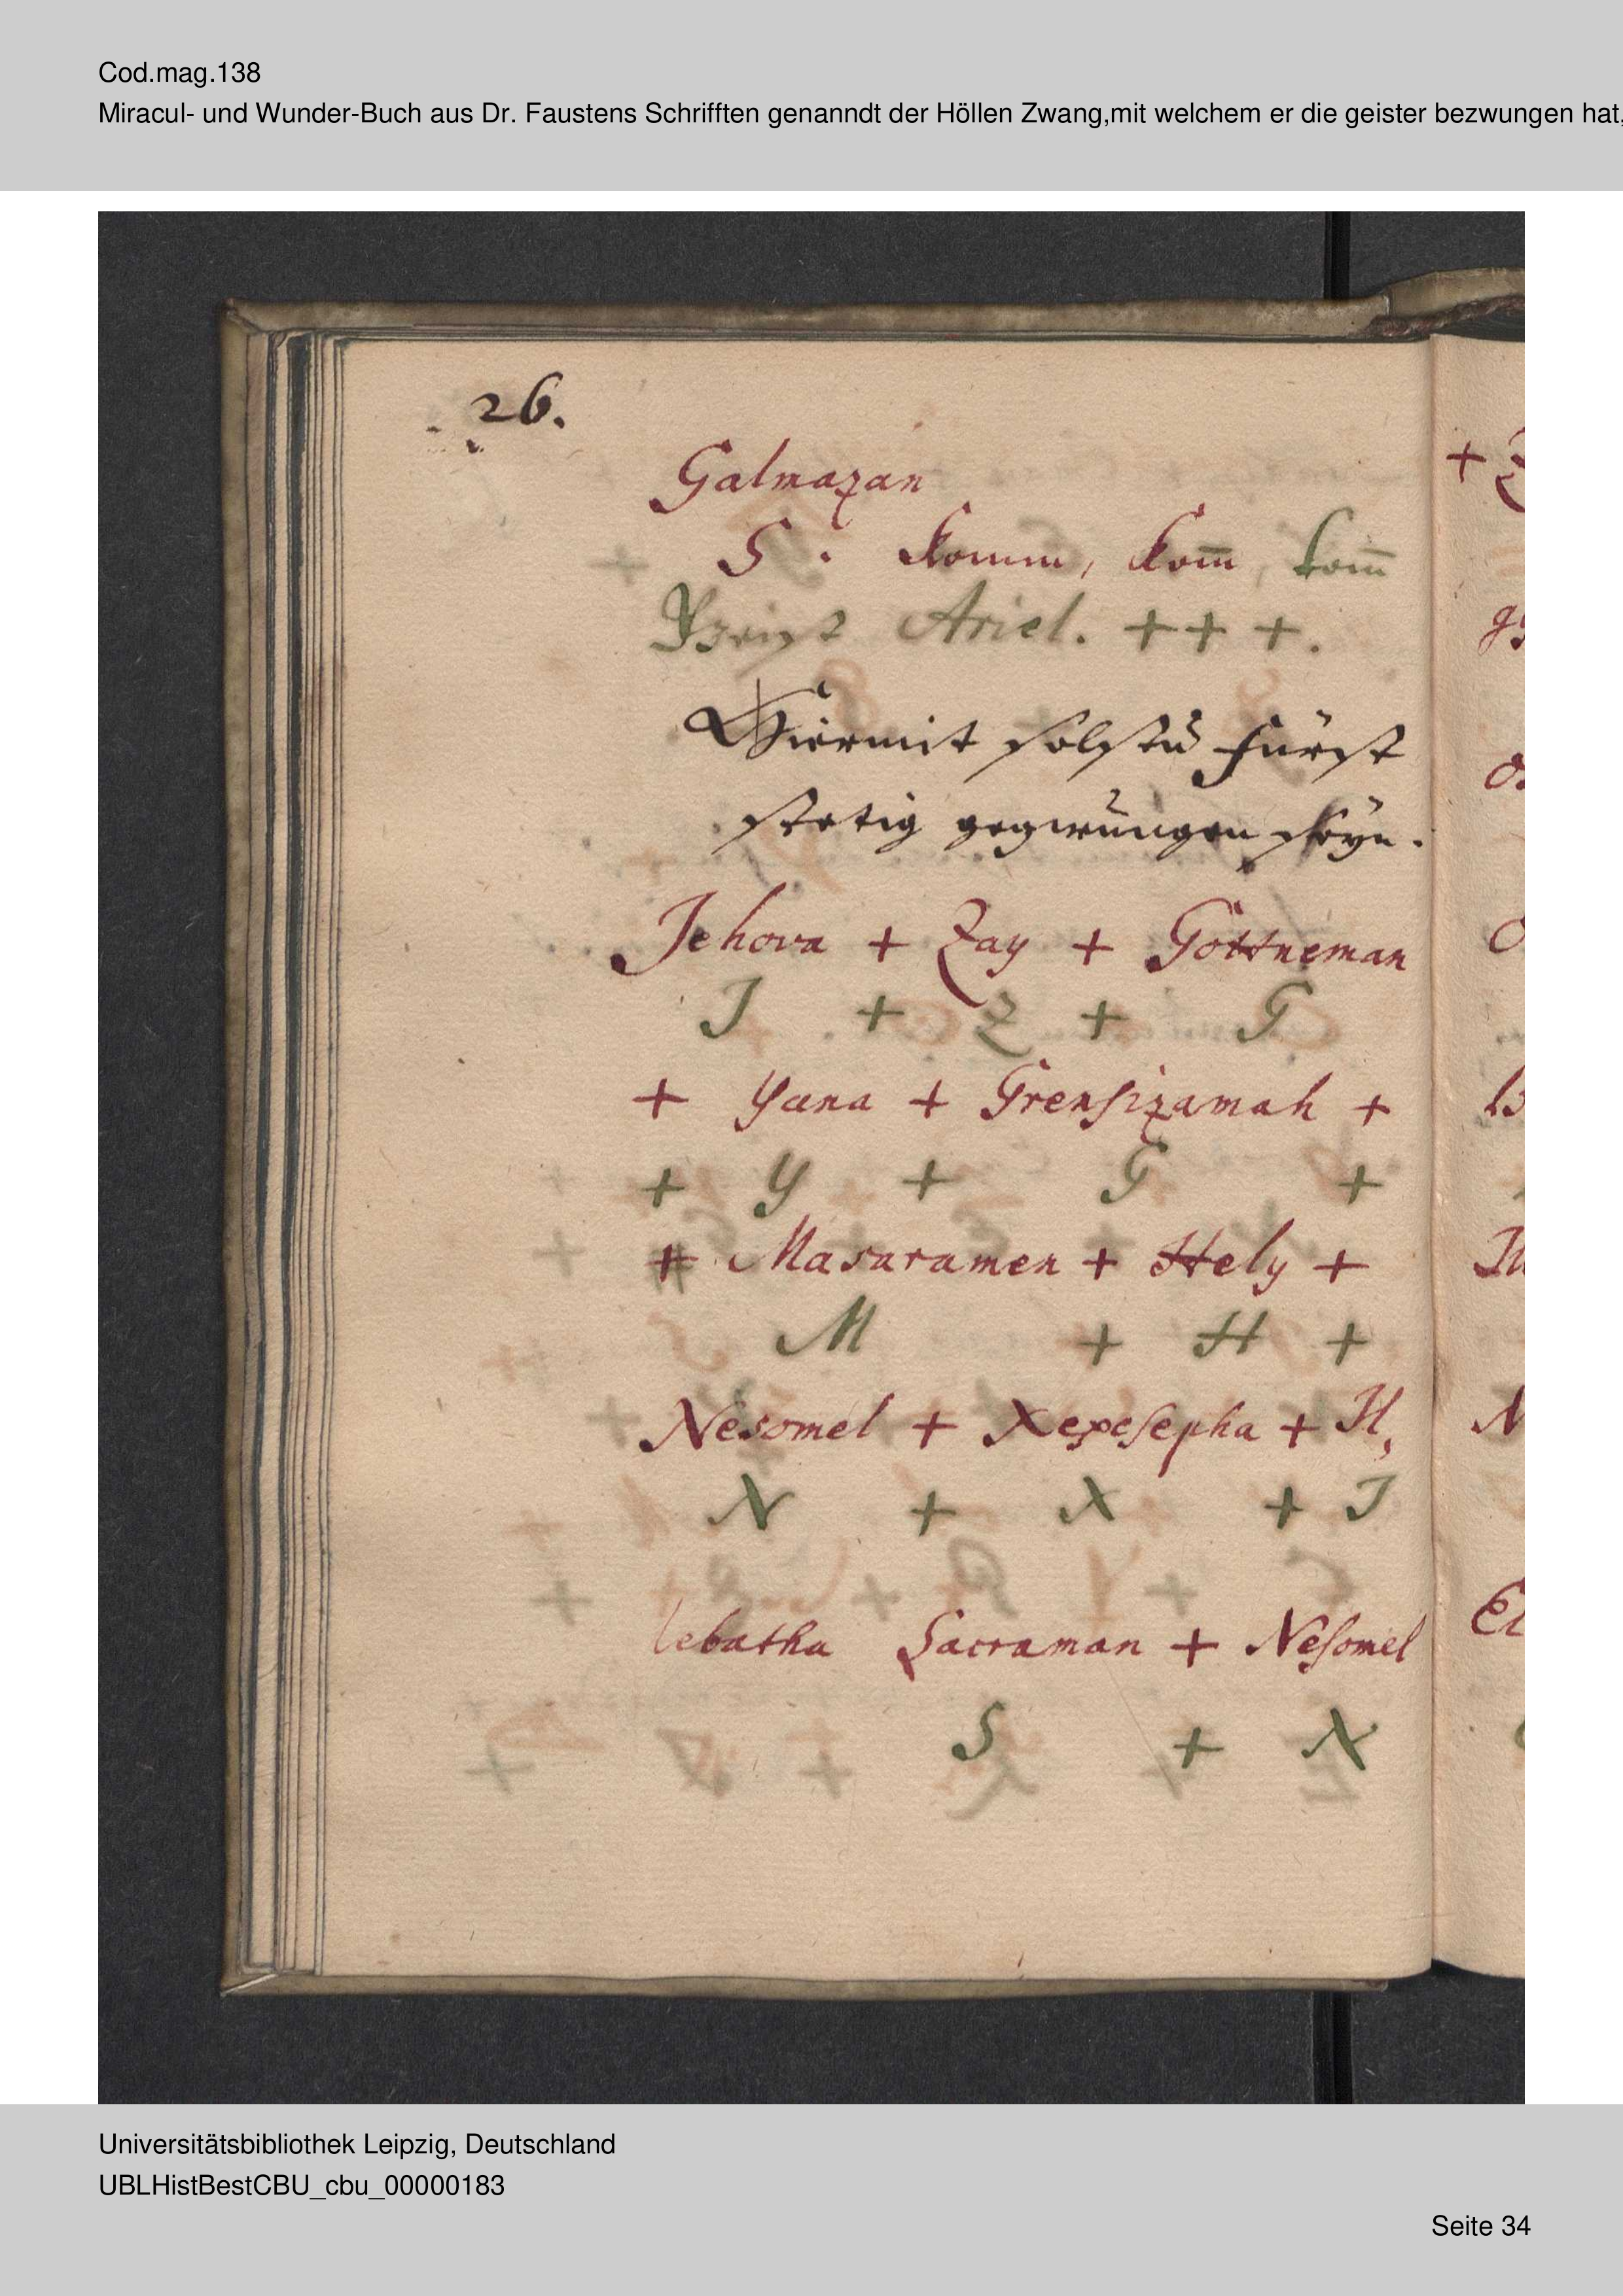 Cod.mag.138
Miracul- und Wunder-Buch aus Dr. Faustens Schrifften genanndt der Höllen Zwang,mit welchem er die geister bezwungen hat,
26.
Galmazan
S. Komm, Kom̅, kom̅
Ariel. + + +.
Hiermit solstu fürst
stetig gezwungen seyn.
Jehova + Zay + Gottneman
J + Z + G
+ Yana + Grensizamah +
+ Y + G +
+ Masaramen + Hely +
M + H +
Nesomel + Xexesepha + Il,
N + X + J
lebatha Sacraman + Nesomel
S + N
Universitätsbibliothek Leipzig, Deutschland
UBLHistBestCBU_cbu_00000183
Seite 34